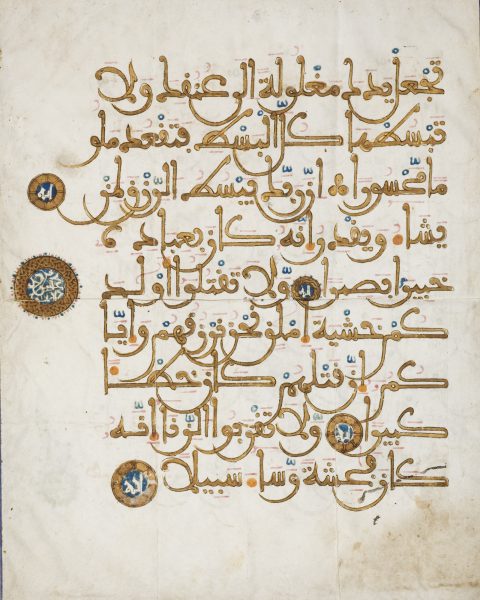 تجعل يدك مغلولة الى عنقك ولا
تبسطها كل البسط فتقعد ملو
ما محسورا ان ربك يبسط الرزق لمن
يشاء ويقدر انه كان بعباده
خبيرا بصيرا ولا تقتلوا اولد
كم خشية املق نحن نرزقهم وايا
كم ان قتلهم كان خطئا
كبيرا ولا تقربوا الزنى انه
كان فحشة وساء سبيلا